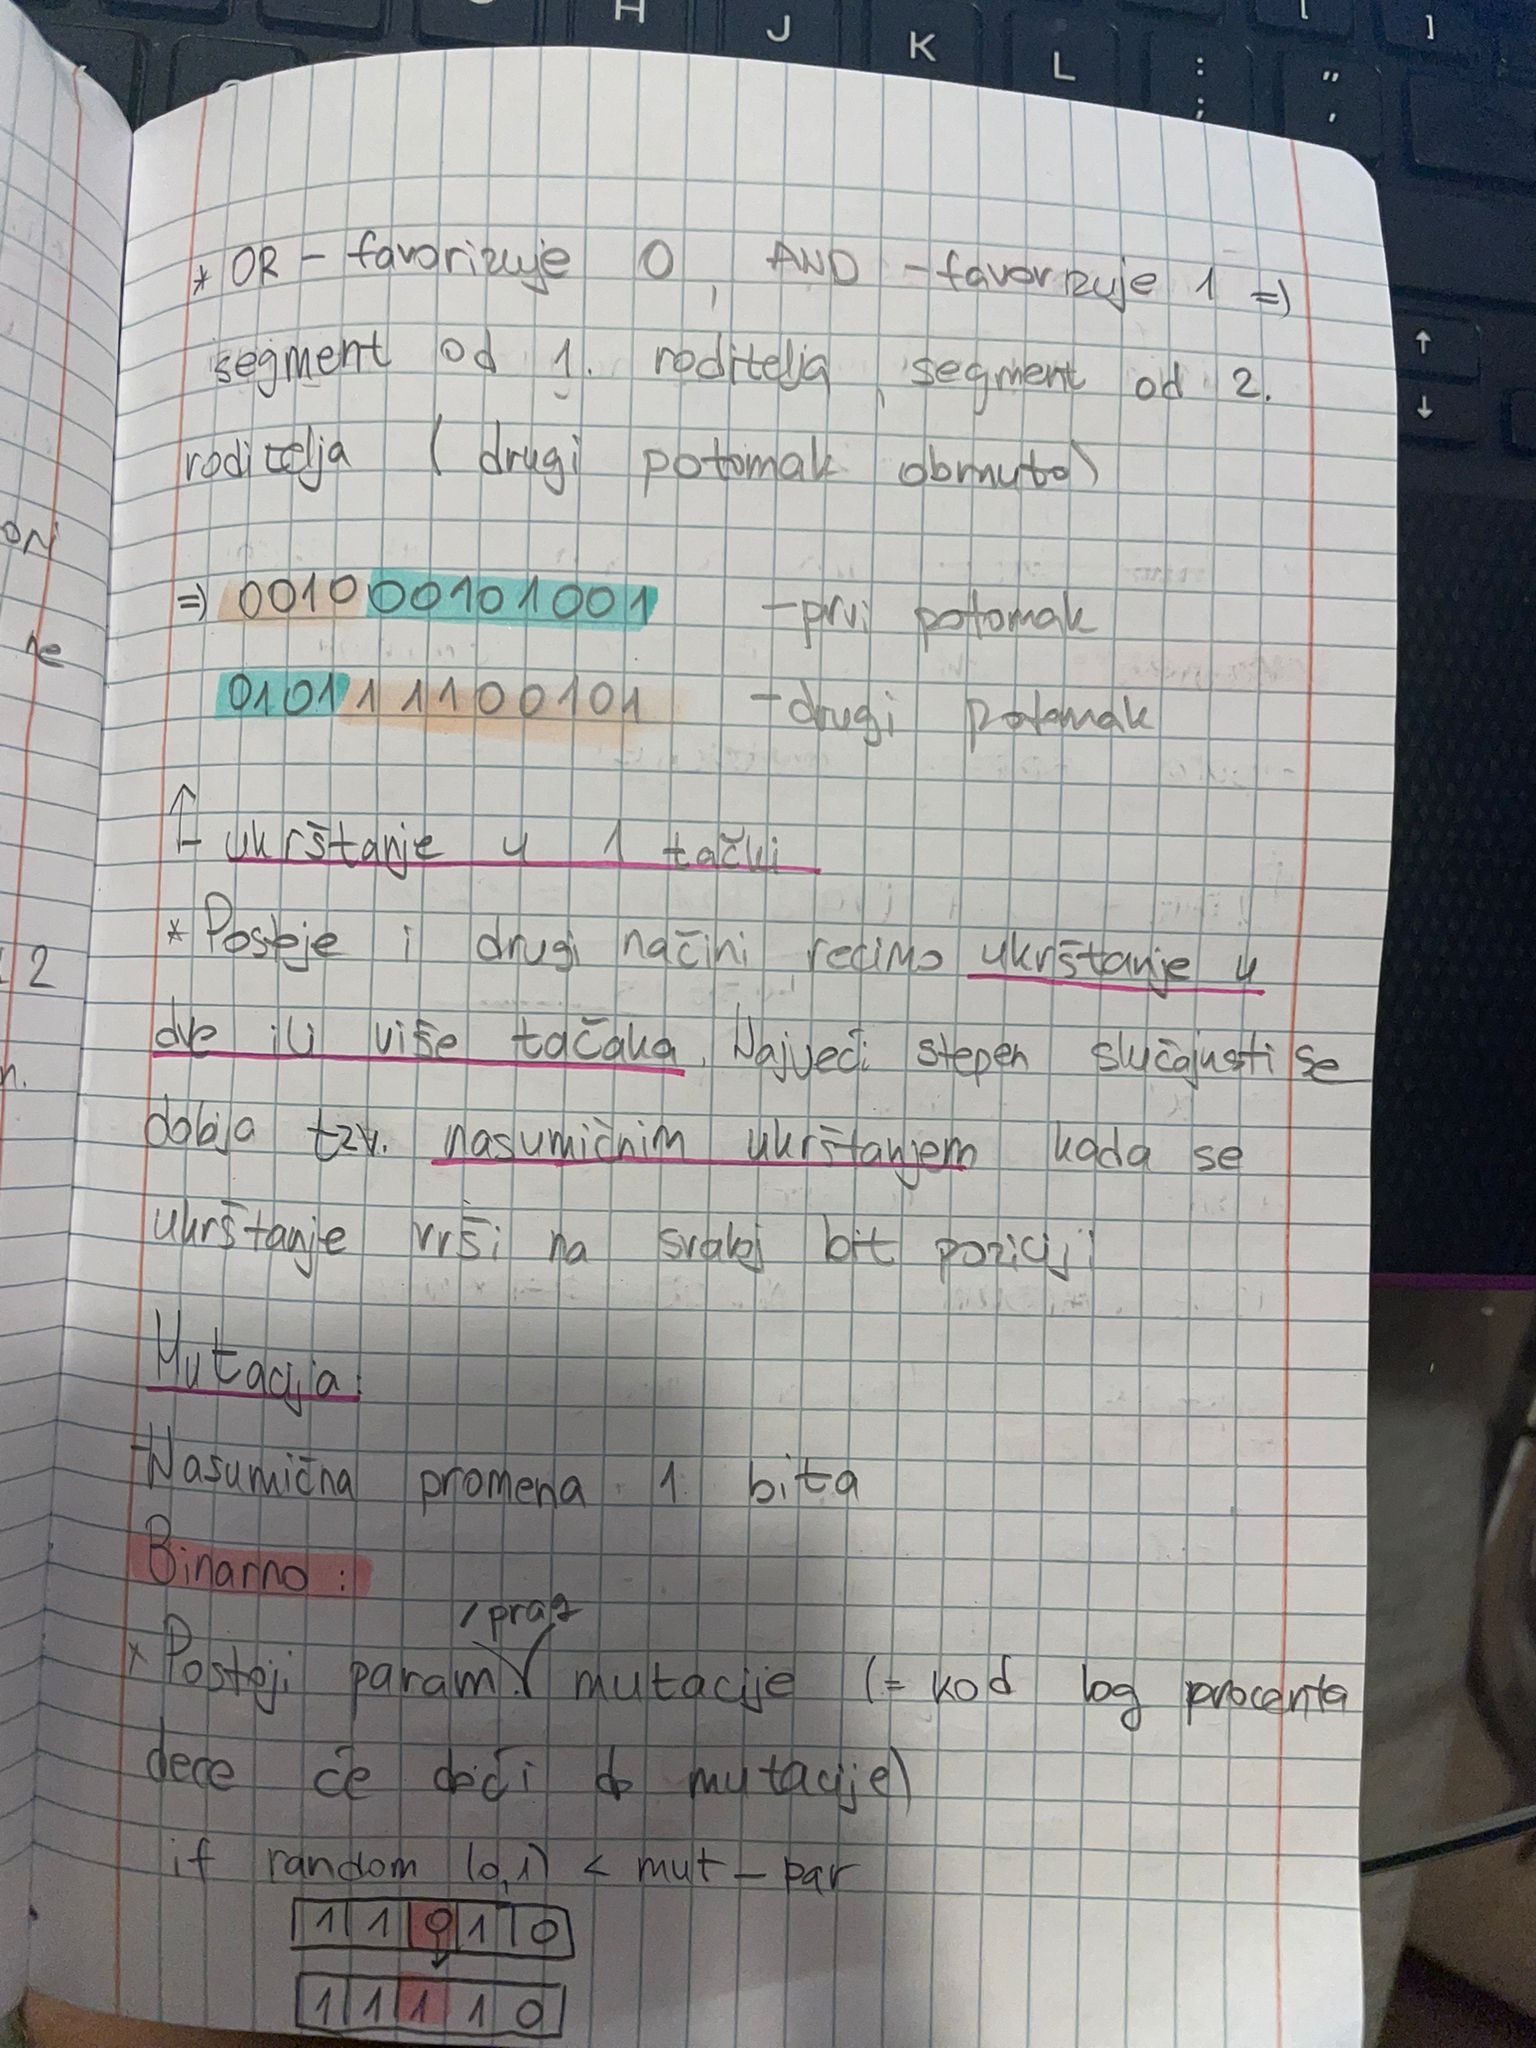 H J K L : ; " , [ ]
↑
↓
* OR - favorizuje 0, AND - favorizuje 1 =>
segment od 1. roditelja, segment od 2.
roditelja (drugi potomak obrnuto)
=> 0010 00101001 - prvi potomak
0101 11100101 - drugi potomak
↑- ukrštanje u 1 tački
* Postoje i drugi načini recimo ukrštanje u
dve ili više tačaka. Najveći stepen slučajnosti se
dobija tzv. nasumičnim ukrštanjem kada se
ukrštanje vrši na svakoj bit poziciji
Mutacija:
- Nasumična promena 1 bita
Binarno:
/prag
* Postoji param. mutacije (= kod kog procenta
dece će doći do mutacije)
if random (0,1) < mut_par
1 1 0 1 0
1 1 1 1 0
ON
2